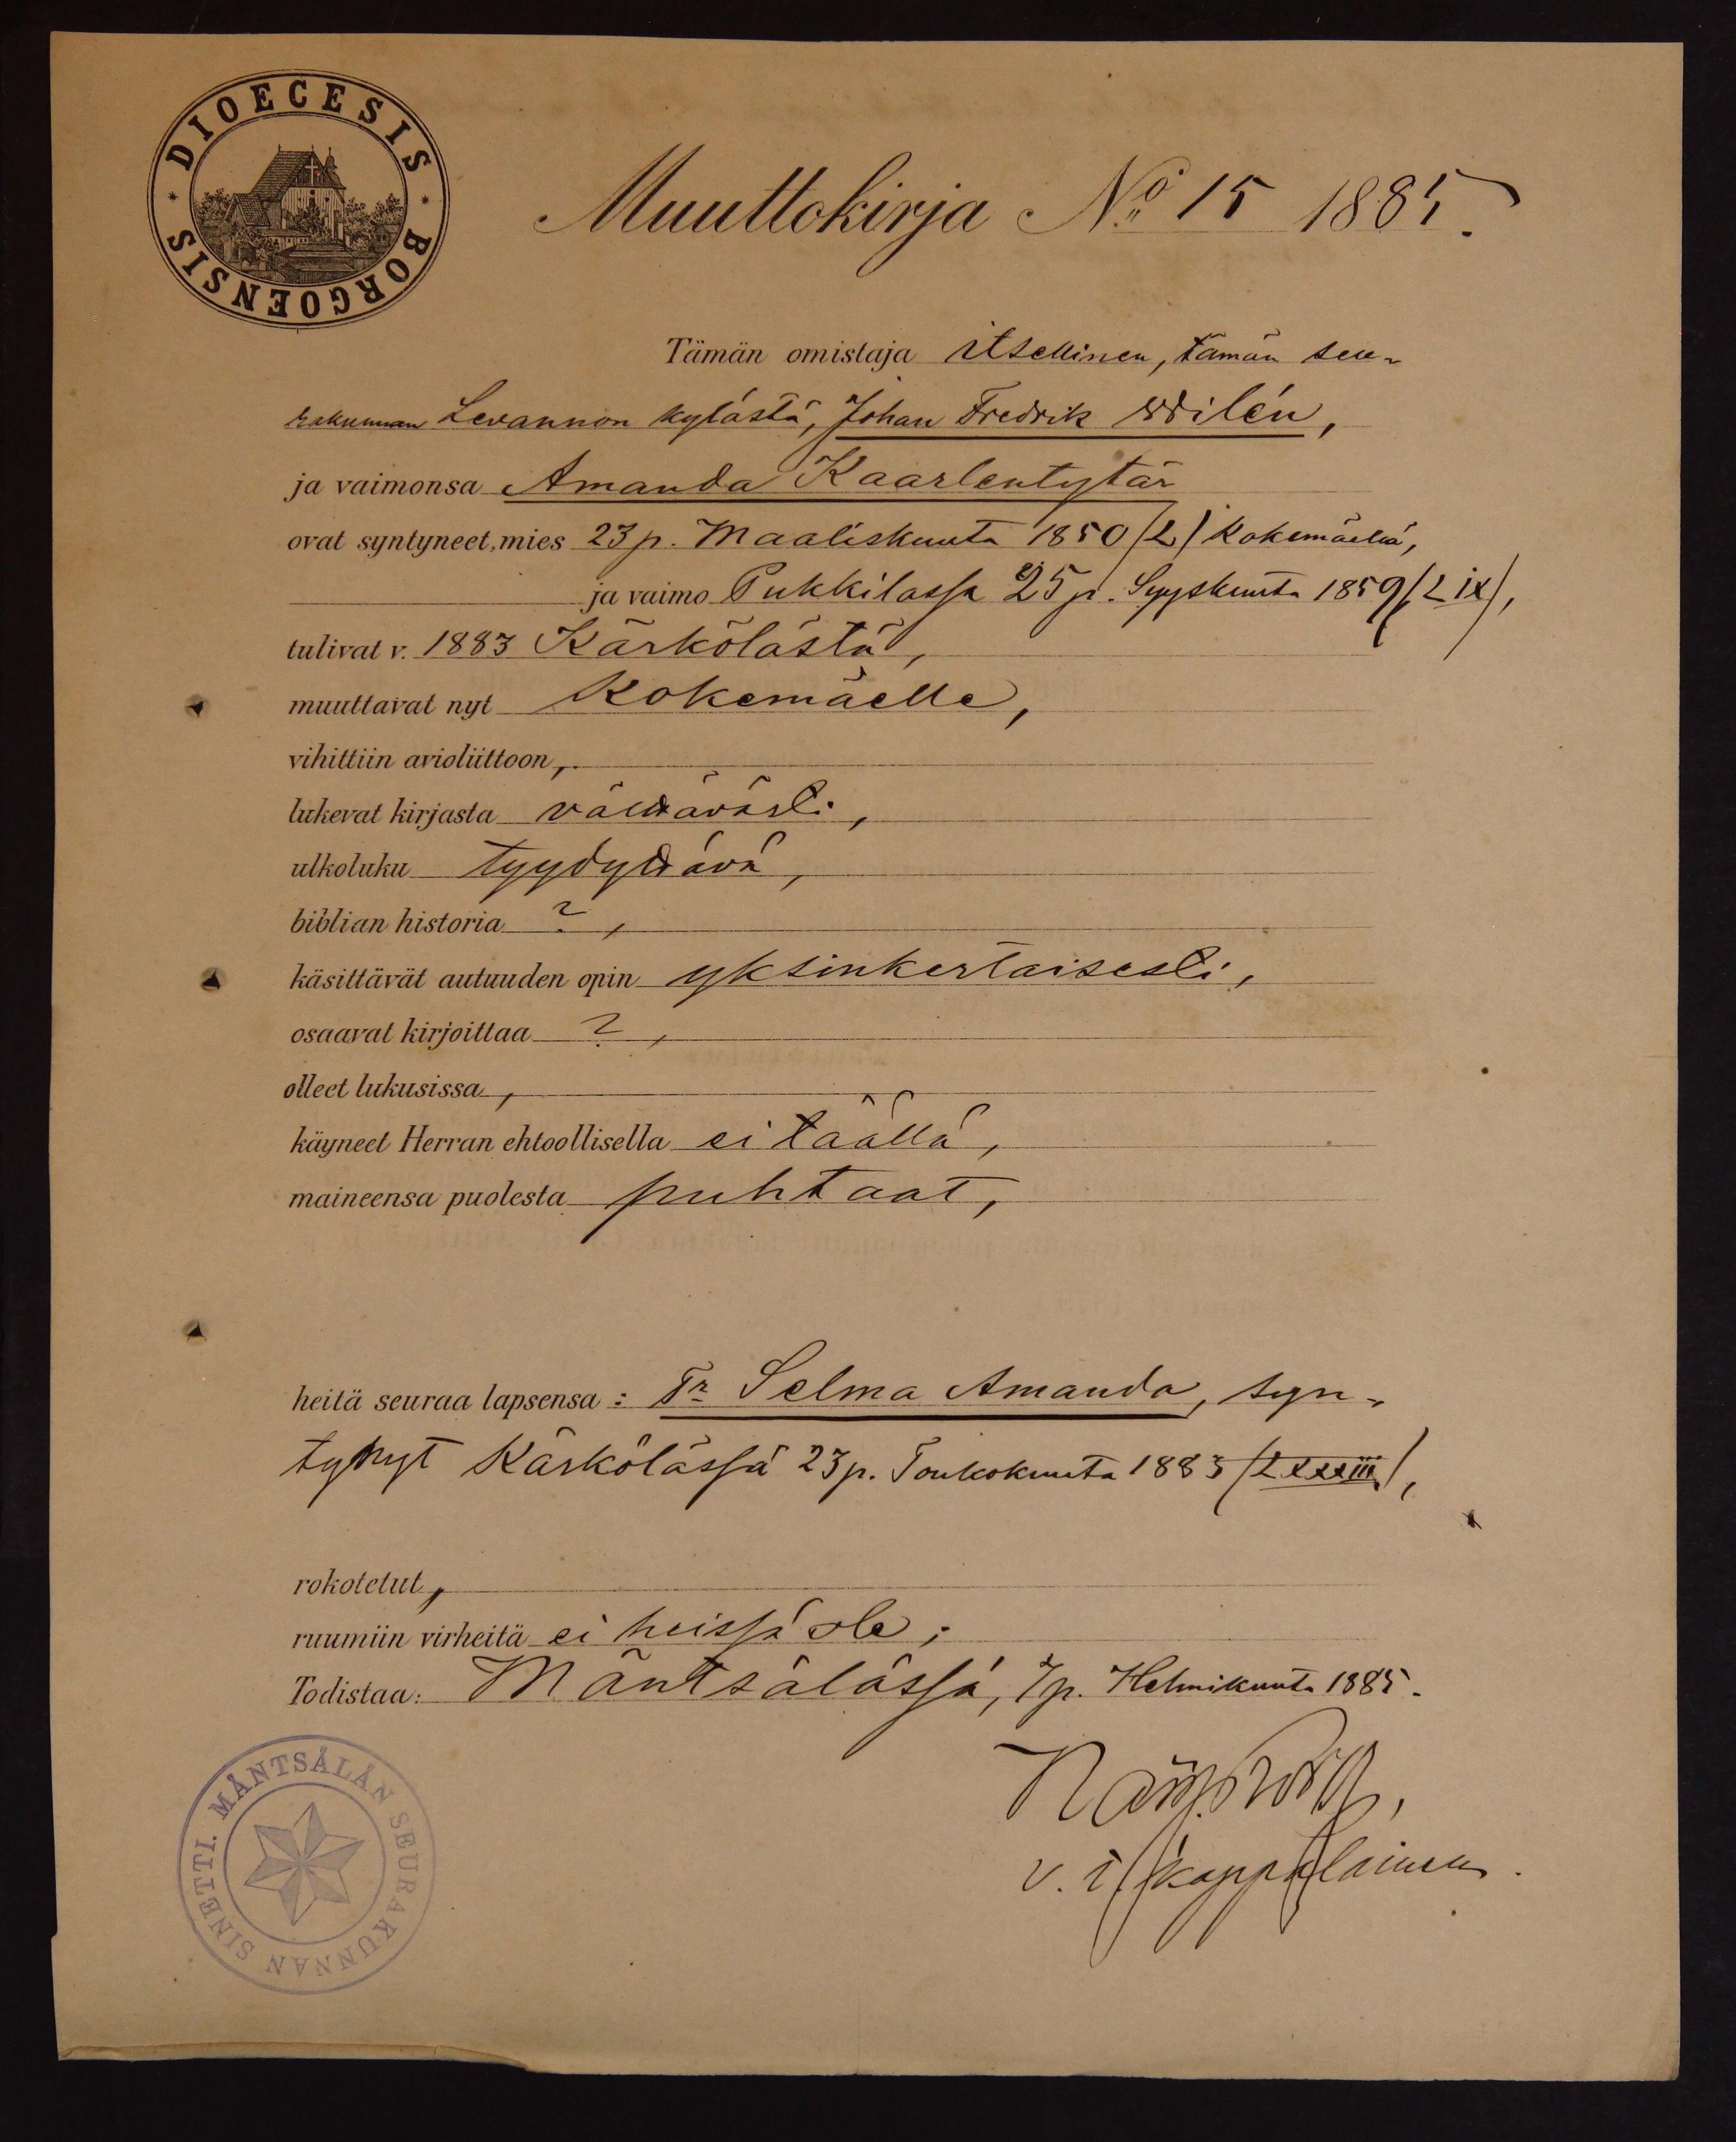 DIOECESIS BORGOENSIS
Muuttokirja No 15 1885.
Tämän omistaja itsellinen, tämän seu-
rakunnan Levannon kylästä, Johan Fredrik Wilén,
ja vaimonsa Amanda Kaarlentytär
ovat syntyneet, mies 23 p. Maaliskuuta 1850 (L) Kokemäellä,
ja vaimo Pukkilassa 25 p. Syyskuuta 1859 (L ix),
tulivat v. 1883 Kärkölästä,
muuttavat nyt Kokemäelle,
vihittiin avioliittoon,
lukevat kirjasta välttävästi,
ulkoluku tyydyttävä,
biblian historia ?,
käsittävät autuuden opin yksinkertaisesti,
osaavat kirjoittaa ?,
olleet lukusissa,
käyneet Herran ehtoollisella ei täällä,
maineensa puolesta puhtaat,
heitä seuraa lapsensa: Tr Selma Amanda, syn-
tynyt Kärkölässä 23 p. Toukokuuta 1883 (Lxxxiii),
rokotetut,
ruumiin virheitä ei heissä ole;
Todistaa: Mäntsälässä, 7 p. Helmikuuta 1885.
v. t. kappalainen.
MÄNTSÄLÄN SEURAKUNNAN SINETTI.